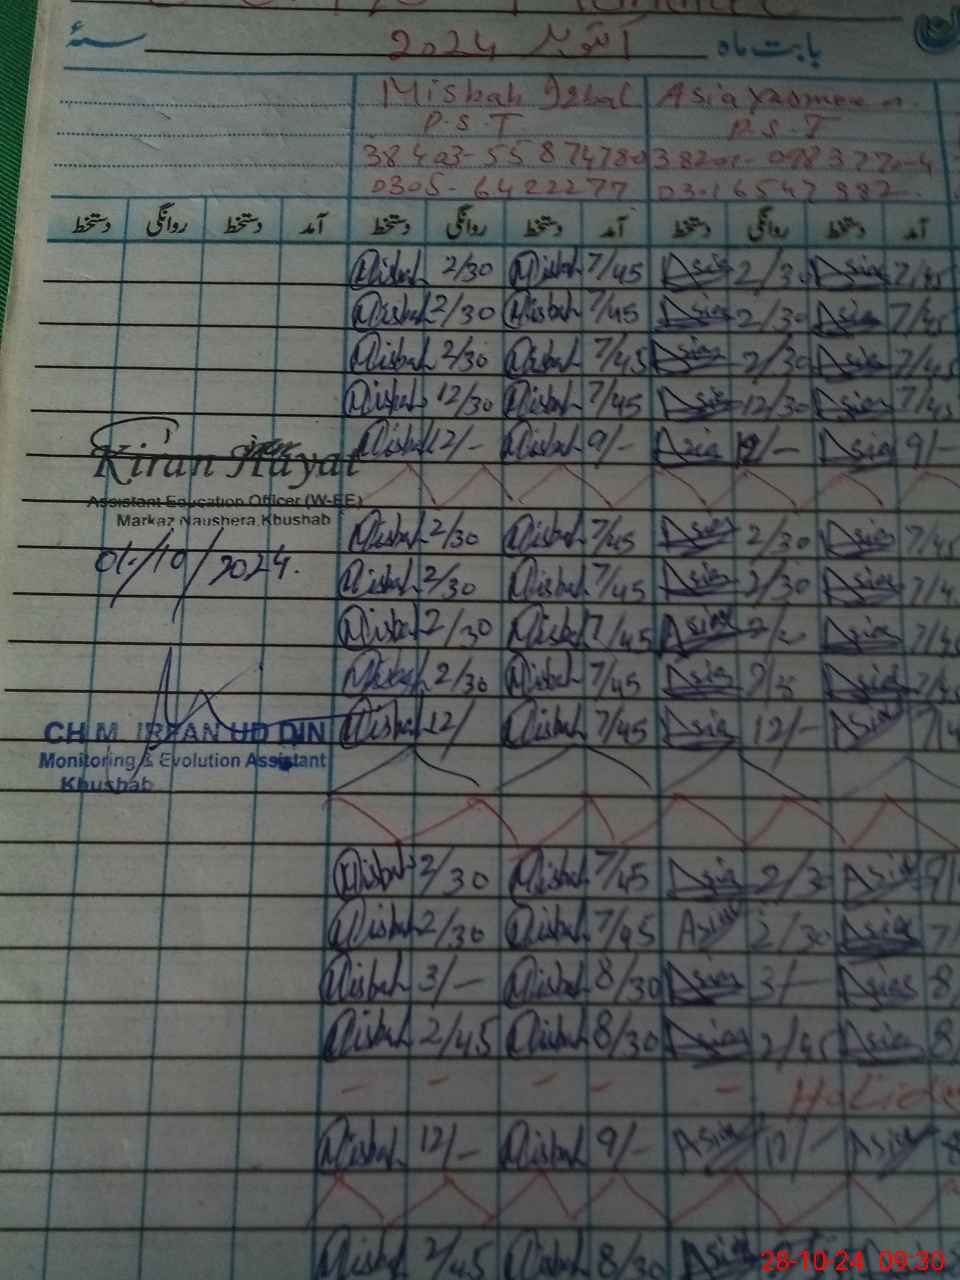 بابت ماہ اکتوبر 2024 سنۂ
Misbah Iqbal Asia Yasmeen
P.S.T P.S.T
38403-55874780
0305-6422277 03016547987
آمد دستخط روانگی دستخط آمد دستخط روانگی دستخط آمد دستخط روانگی دستخط
Misbah 2/30 Misbah 7/45 Asia 2/30 Asia 7/45
Misbah 2/30 Misbah 7/45 Asia 2/30 Asia 7/45
Misbah 2/30 Misbah 7/45 Asia 2/30 Asia 7/45
Misbah 12/30 Misbah 7/45 Asia 12/30 Asia 7/45
Misbah 12/- Misbah 9/- Asia 12/- Asia 9/-
Kiran Hayat
Assistant Education Officer (W-EE)
Markaz Naushera Khushab
01/10/2024.
Misbah 2/30 Misbah 7/45 Asia 2/30 Asia 7/45
Misbah 2/30 Misbah 7/45 Asia 2/30 Asia 7/4
Misbah 2/30 Misbah 7/45 Asia Asia 7/45
Misbah 2/30 Misbah 7/45 Asia Asia 7/45
Misbah 12/ Misbah 7/45 Asia 12/- Asia 7/4
CH.M. IRFAN UD DIN
Monitoring & Evolution Assistant
Khushab
Misbah 2/30 Misbah 7/45 Asia 2/3 Asia
Misbah 2/30 Misbah 7/45 Asia 2/30 Asia 7/
Misbah 3/- Misbah 8/30 Asia 3/- Asia 8/
Misbah 2/45 Misbah 8/30 Asia 2/45 Asia 8/
- - - - - Holida
Misbah 12/- Misbah 9/- Asia 12/- Asia
Misbah 2/45 Misbah 8/30 Asia
28-10-24 09:30